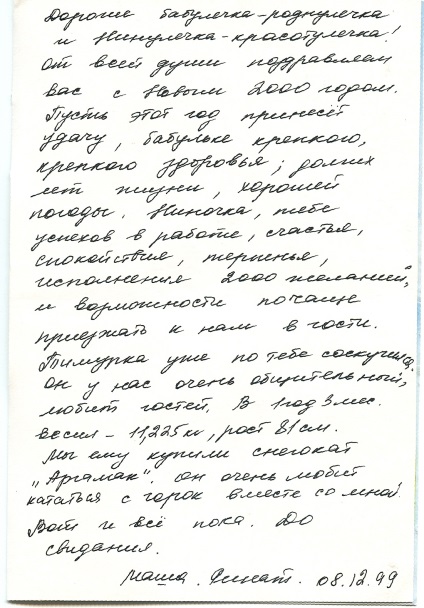 Дорогие бабулечка-роднулечка
и Нинулечка-красотулечка!
От всей души поздравляем
вас с Новым 2000 годом.
Пусть этот год принесёт
удачу, бабульке крепкого,
крепкого здоровья, долгих
лет жизни, хорошей
погоды. Ниночка, тебе
успехов в работе, счастья,
спокойствия, терпенья,
исполнения 2000 желаний,
и возможности почаще
приезжать к нам в гости.
Тимурка уже по тебе соскучился.
Он у нас очень общительный,
любит гостей. В 1 год 3 мес.
весил - 11,225 кг, рост 81 см.
Мы ему купили снегокат
"Аргамак". Он очень любит
кататься с горок вместе со мной.
Вот и всё пока. До
свидания.
Маша. Ринат. 08.12.99